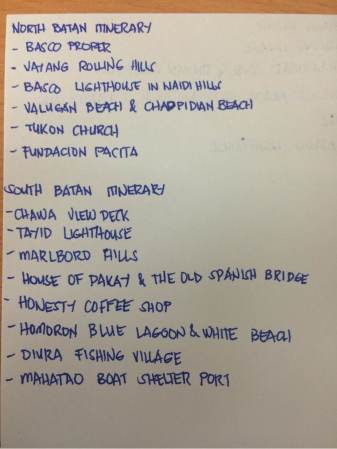 NORTH BATAN ITINERARY
- BASCO PROPER
- VAYANG ROLLING HILLS
- BASCO LIGHTHOUSE IN NAIDI HILLS
- VALUGAN BEACH & CHADPIDIAN BEACH
- TUKON CHURCH
- FUNDACION PACITA
SOUTH BATAN ITINERARY
- CHAWA VIEW DECK
- TAYID LIGHTHOUSE
- MARLBORO HILLS
- HOUSE OF DAKAY & THE OLD SPANISH BRIDGE
- HONESTY COFFEE SHOP
- HOMORON BLUE LAGOON & WHITE BEACH
- DIURA FISHING VILLAGE
- MAHATAO BOAT SHELTER PORT